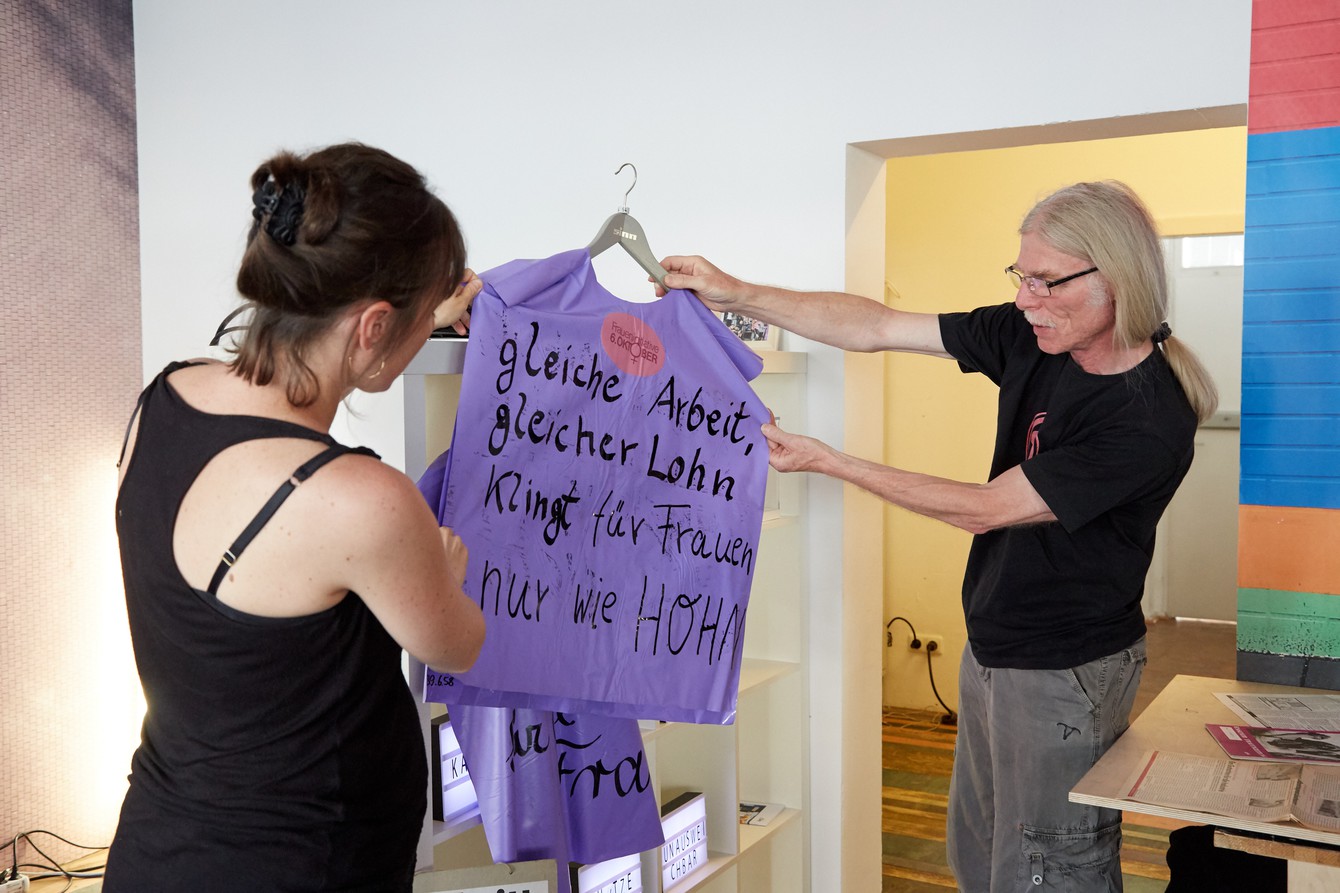 sinn
Fraueninitiative
6.OKTOBER
gleiche Arbeit,
gleicher Lohn
Klingt für Frauen
nur wie HOHN
39.658
für
Frau
KA
UNAUSWEI
CHBAR